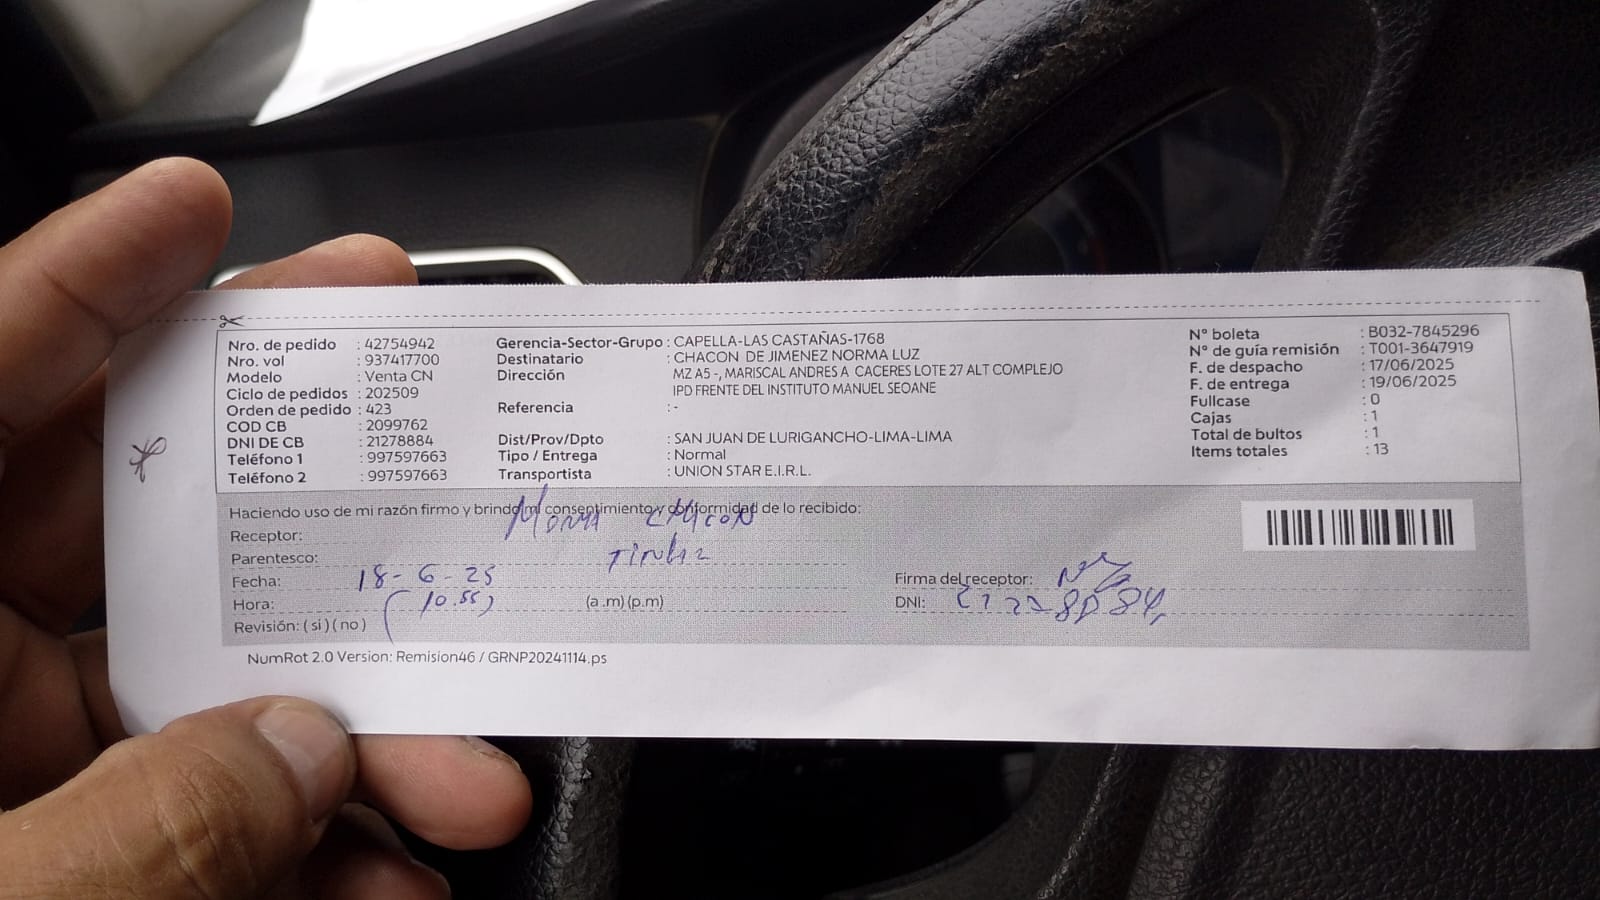 Nro. de pedido : 42754942
Nro. vol : 937417700
Modelo : Venta CN
Ciclo de pedidos : 202509
Orden de pedido : 423
COD CB : 2099762
DNI DE CB : 21278884
Teléfono 1 : 997597663
Teléfono 2 : 997597663
Gerencia-Sector-Grupo : CAPELLA-LAS CASTAÑAS-1768
Destinatario : CHACON DE JIMENEZ NORMA LUZ
Dirección : MZ A5 -, MARISCAL ANDRES A CACERES LOTE 27 ALT COMPLEJO
IPD FRENTE DEL INSTITUTO MANUEL SEOANE
Referencia : -
Dist/Prov/Dpto : SAN JUAN DE LURIGANCHO-LIMA-LIMA
Tipo / Entrega : Normal
Transportista : UNION STAR E.I.R.L.
N° boleta : B032-7845296
N° de guía remisión : T001-3647919
F. de despacho : 17/06/2025
F. de entrega : 19/06/2025
Fullcase : 0
Cajas : 1
Total de bultos : 1
Items totales : 13
Haciendo uso de mi razón firmo y brindo mi consentimiento y conformidad de lo recibido:
Receptor: Norma Chacon
Parentesco:
Fecha: 18-6-25
Hora: (10.55) (a.m) (p.m)
Revisión: ( si ) ( no )
Firma del receptor:
DNI:
NumRot 2.0 Version: Remision46 / GRNP20241114.ps